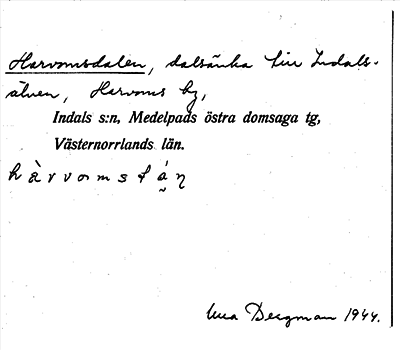 Harvomsdalen, dalsänka till Indals-
älven, Harvoms by,
Indals s:n, Medelpads östra domsaga tg,
Västernorrlands län.
hàrvomsdáŋ
Bergman 1944.